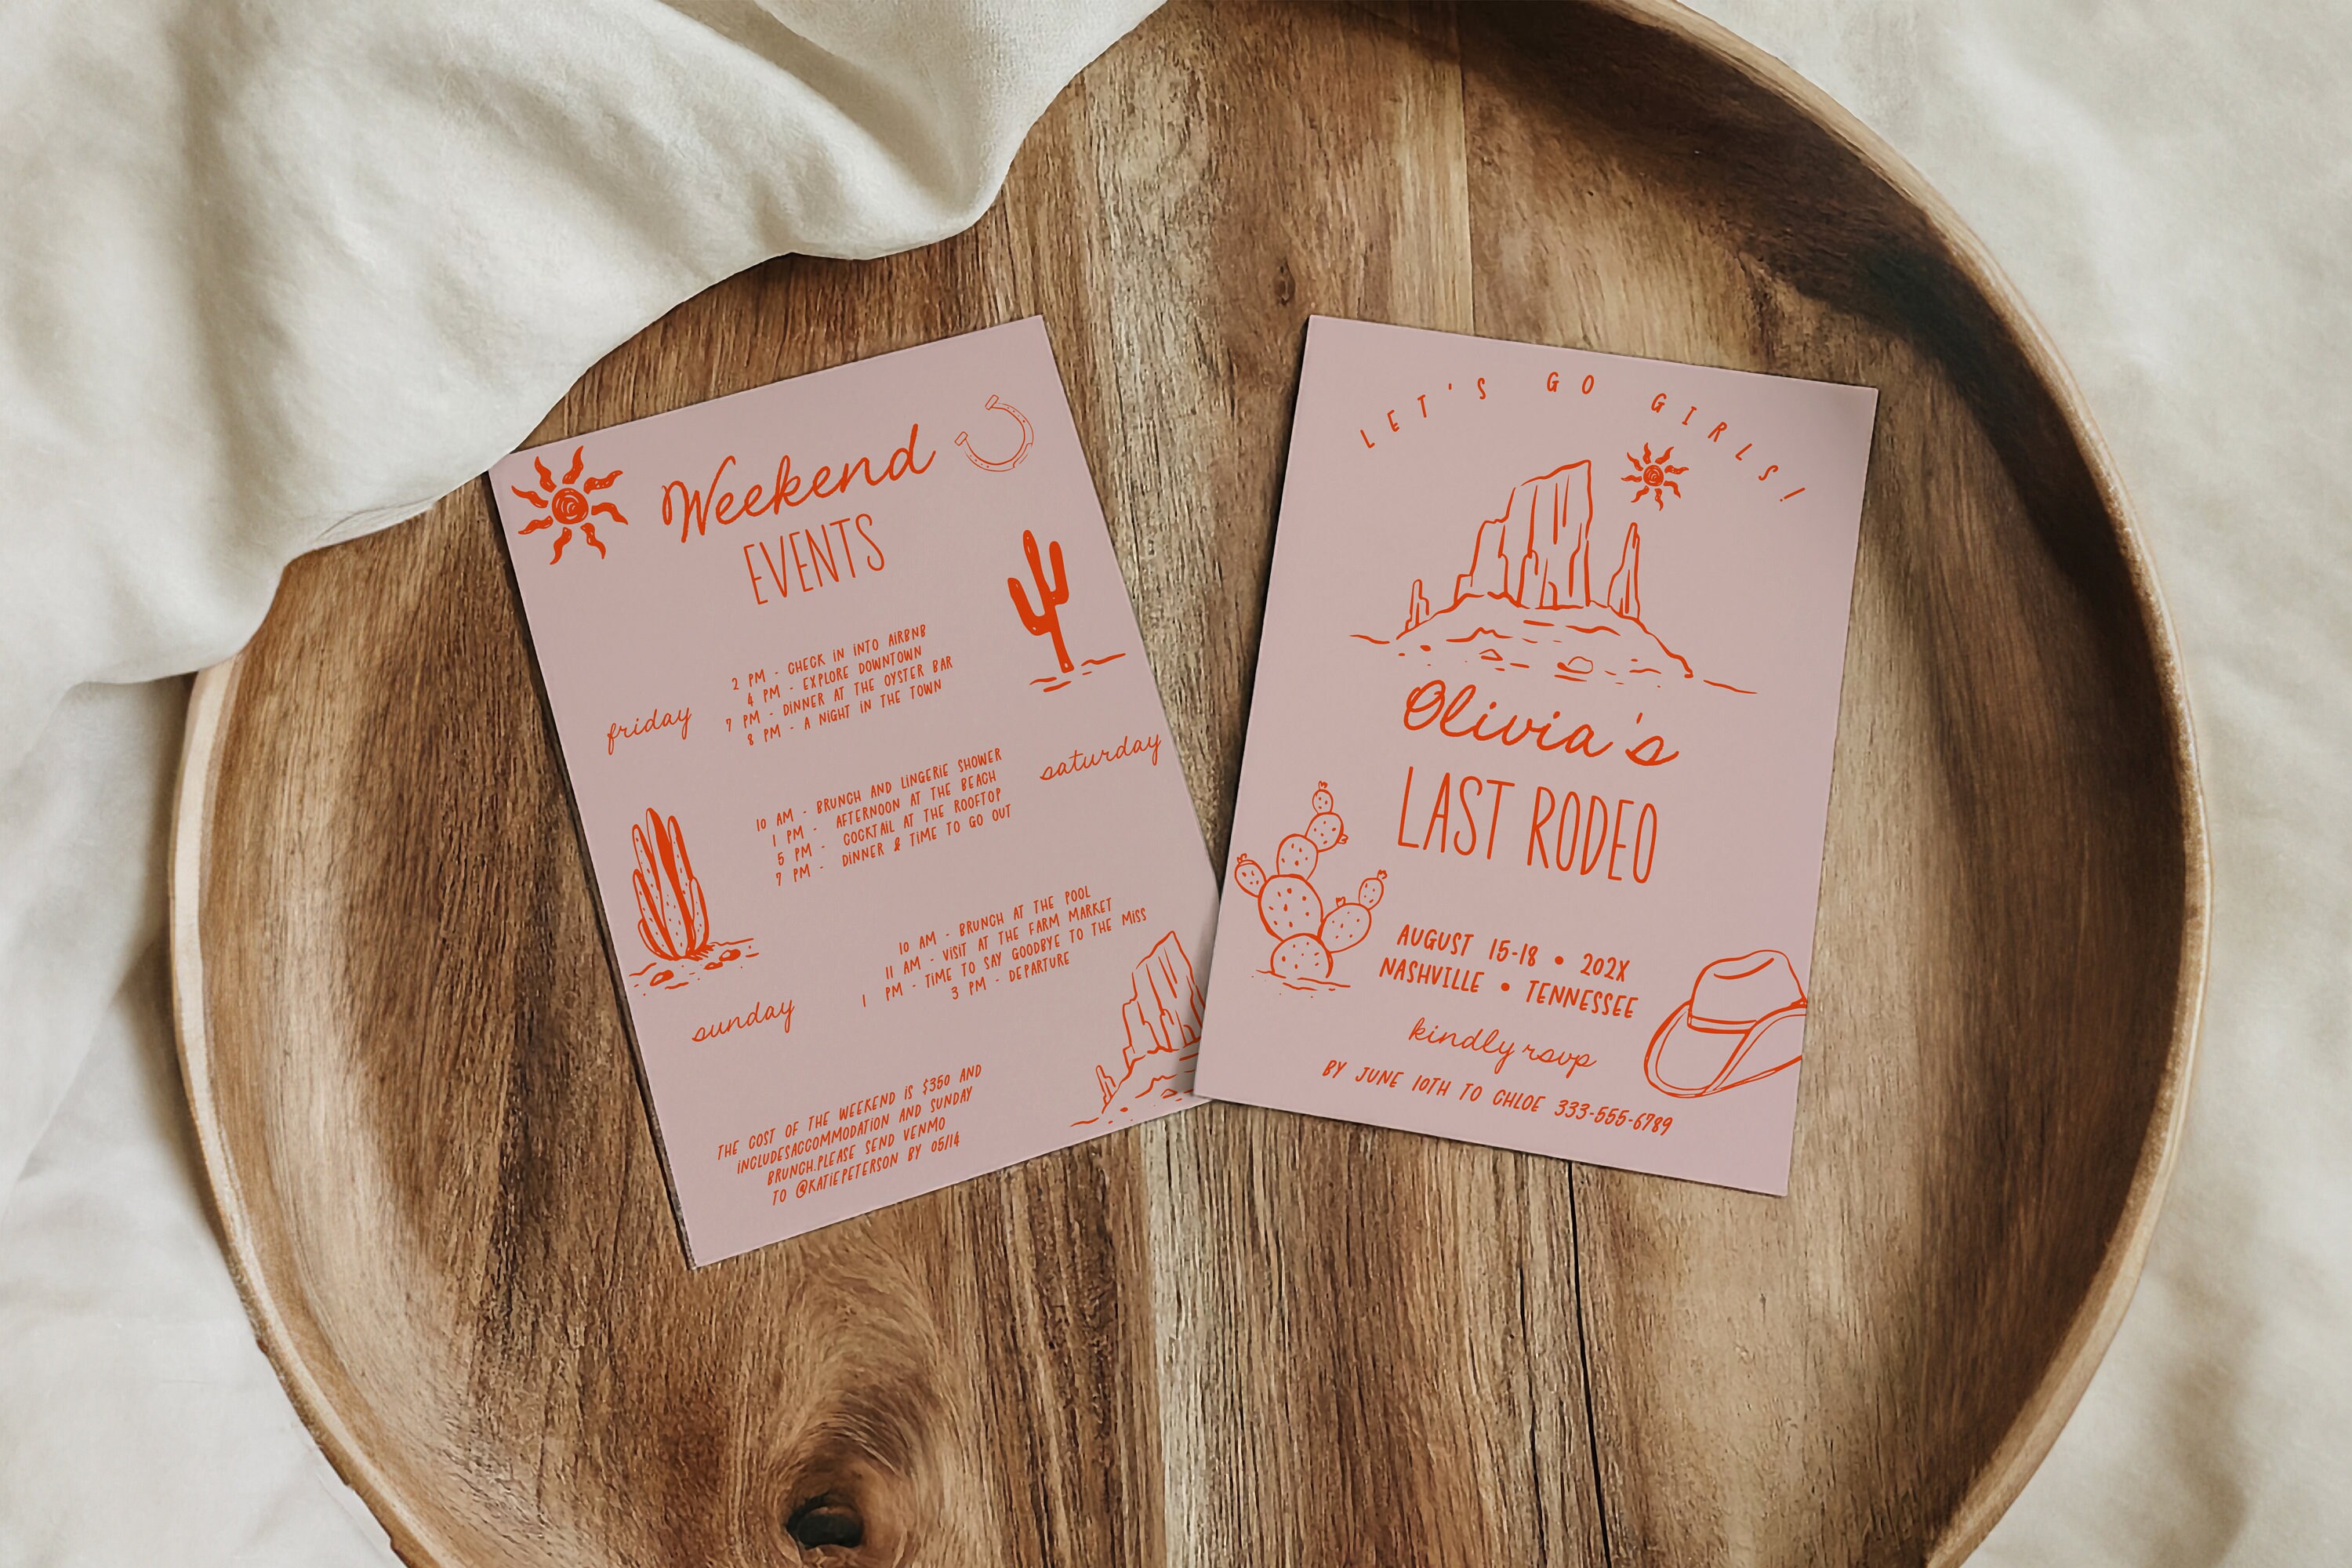 Weekend
EVENTS
friday
2 PM - CHECK IN INTO AIRBNB
4 PM - EXPLORE DOWNTOWN
7 PM - DINNER AT THE OYSTER BAR
8 PM - A NIGHT IN THE TOWN
saturday
10 AM - BRUNCH AND LINGERIE SHOWER
1 PM - AFTERNOON AT THE BEACH
5 PM - COCKTAIL AT THE ROOFTOP
7 PM - DINNER & TIME TO GO OUT
sunday
10 AM - BRUNCH AT THE POOL
11 AM - VISIT AT THE FARM MARKET
1 PM - TIME TO SAY GOODBYE TO THE MISS
3 PM - DEPARTURE
THE COST OF THE WEEKEND IS $350 AND
INCLUDESACCOMMODATION AND SUNDAY
BRUNCH.PLEASE SEND VENMO
TO @KATIEPETERSON BY 05/14
LET'S GO GIRLS!
Olivia's
LAST RODEO
AUGUST 15-18 • 202X
NASHVILLE • TENNESSEE
kindly rsvp
BY JUNE 10TH TO CHLOE 333-555-6789